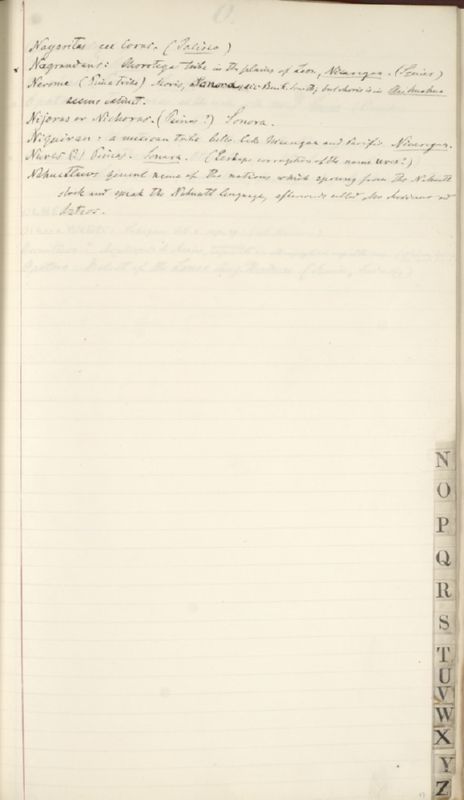 Nayaritas see Coras. (Jalisco)
Nagrandans: Chorotega tribe in the plains of Leon, Nicaragua. (Squier)
Nevome (Pima tribe) Moris, Sonora, Buck. Smith, but Moris is in Chihuahua
seems extinct.
Nijoras or Nichoras. (Pimas?) Sonora.
Niquiran: a mexican tribe betw. Lake Nicaragua and Pacific. Nicaragua.
Nures (?) Pimas. Sonora. (Perhaps corruption of the name)
Nahuatlacs general name of the nations which sprung from the Nahuatl
stock and speak the Nahuatl language, afterwards called also Mexicans and
Aztecs.
N
O
P
Q
R
S
T
U
V
W
X
Y
Z